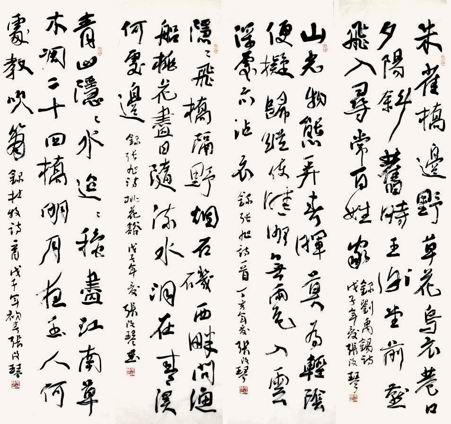 朱雀橋邊野草花烏衣巷口
夕陽斜舊時王謝堂前燕
飛入尋常百姓家
錄劉禹錫詩
戊子年夏張琴
山光物態弄春暉莫為輕陰
便擬歸縱使晴明無雨色入雲
深處亦沾衣 錄張旭詩一首 丁亥年夏張琴
隱隱飛橋隔野烟石磯西畔問漁
船桃花盡日隨流水洞在青溪
何處邊 錄張旭詩桃花谿 戊子年夏張琴
青山隱隱水迢迢秋盡江南草
木凋二十四橋明月夜玉人何
處教吹簫 錄杜牧詩一首戊子年初夏張琴